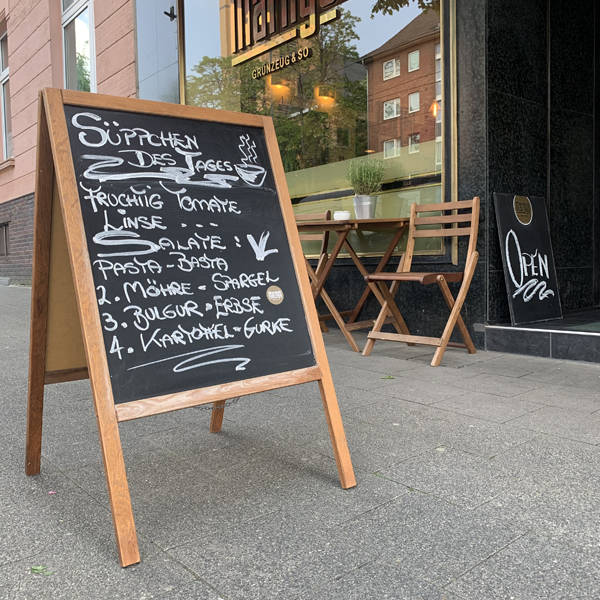 GRÜNZEUG & SO
SÜPPCHEN
DES TAGES
FRUCHTIG TOMATE
LINSE ---
SALATE:
PASTA-BASTA
2. MÖHRE-SPARGEL
3. BULGUR-ERBSE
4. KARTOFFEL-GURKE
OPEN